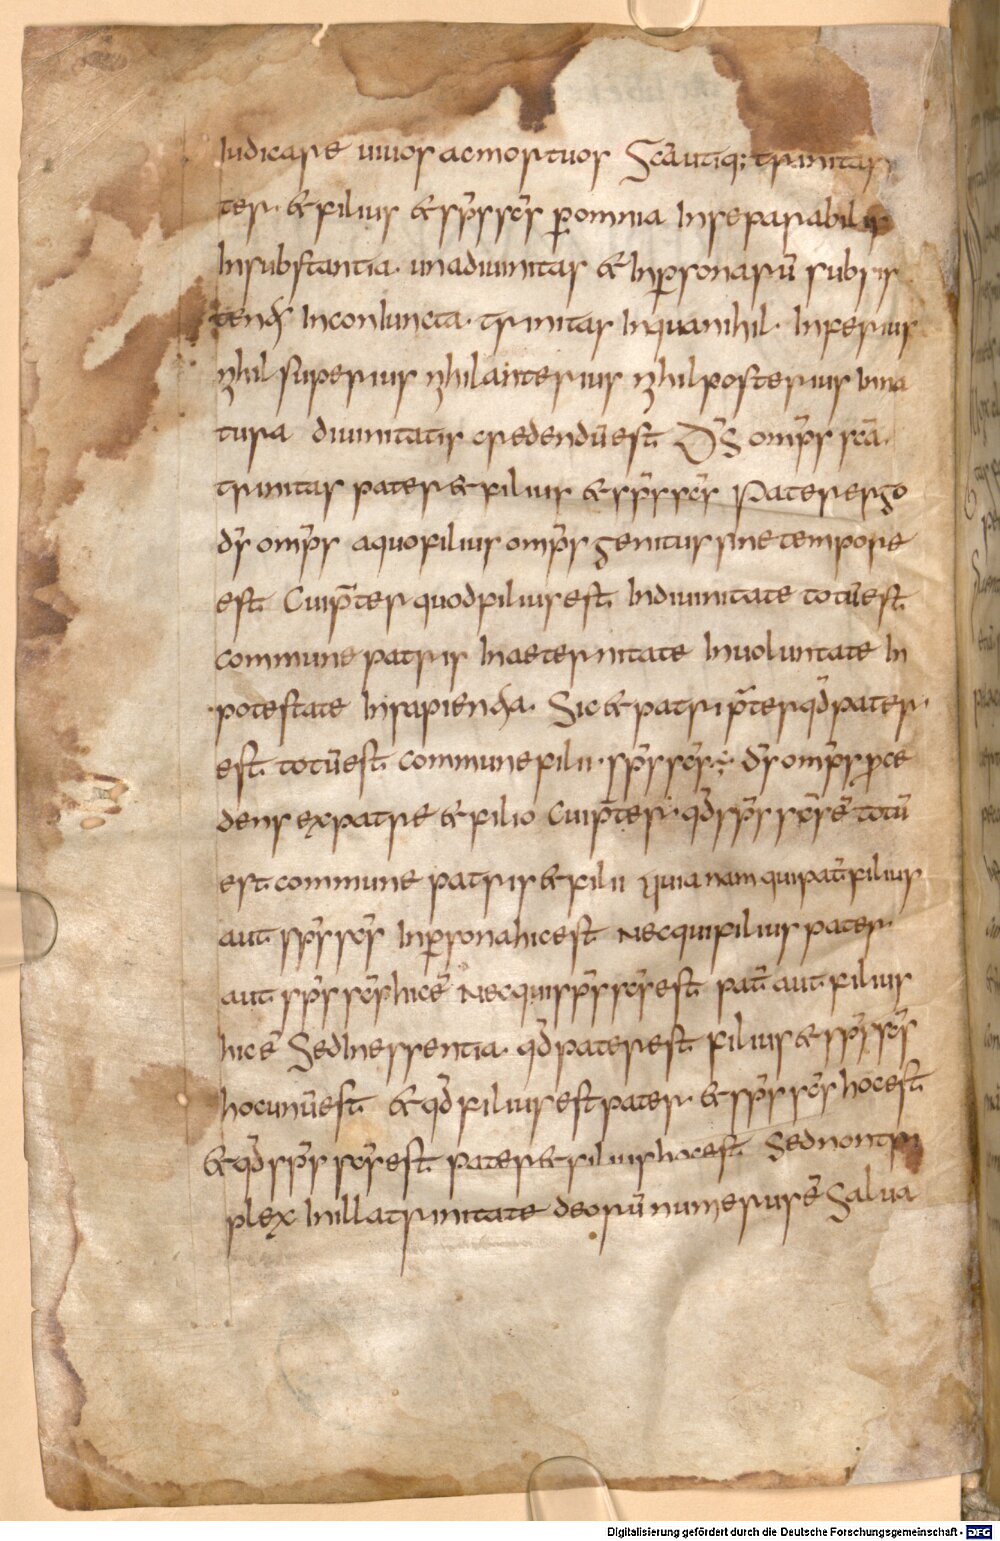 Iudicare uiuos ac mortuos Sc̄a utiq; trinitas
ter· & filius & sp̄s sc̄s ꝑ omnia Inseparabilis
In substantia· una diuinitas & In ꝑsonarū subsis
tend Inconiuncta· trinitas In qua nihil· Inferius
nihil superius nihil anterius nihil posterius Una
tura diuinitatis credendū est D̄s omp̄s sc̄a·
trinitas pater & filius & sp̄s sc̄s Pater ergo
d̄s omp̄s a quo filius omp̄s genitus sine tempore
est· Cui p̄ter quod filius est· In diuinitate totū est
commune patris In aeternitate In uoluntate In
potestate In sapientia· Sic & patri p̄ter qd̄ pater
est· totū est· commune filii· sp̄s sc̄s ÷ d̄s omp̄s ꝓce
dens ex patre & filio Cui p̄ter· qd̄ sp̄s sc̄s ē totū
est commune patris & filii Quia nam qui pat̄ filius
aut sp̄s sc̄s In ꝑsona hic est Nec qui filius pater·
aut sp̄s sc̄s hic ē Nec qui sp̄s sc̄s est pat̄ aut filius
hic ē Sed In essentia· qd̄ pater est filius & sp̄s sc̄s
hoc unū est· & qd̄ filius est pater· & sp̄s sc̄s hoc est
& qd̄ sp̄s sc̄s est· pater & filius hoc est· Sed non tri
plex In illa trinitate deorū numerus ē Salua
Digitalisierung gefördert durch die Deutsche Forschungsgemeinschaft - DFG